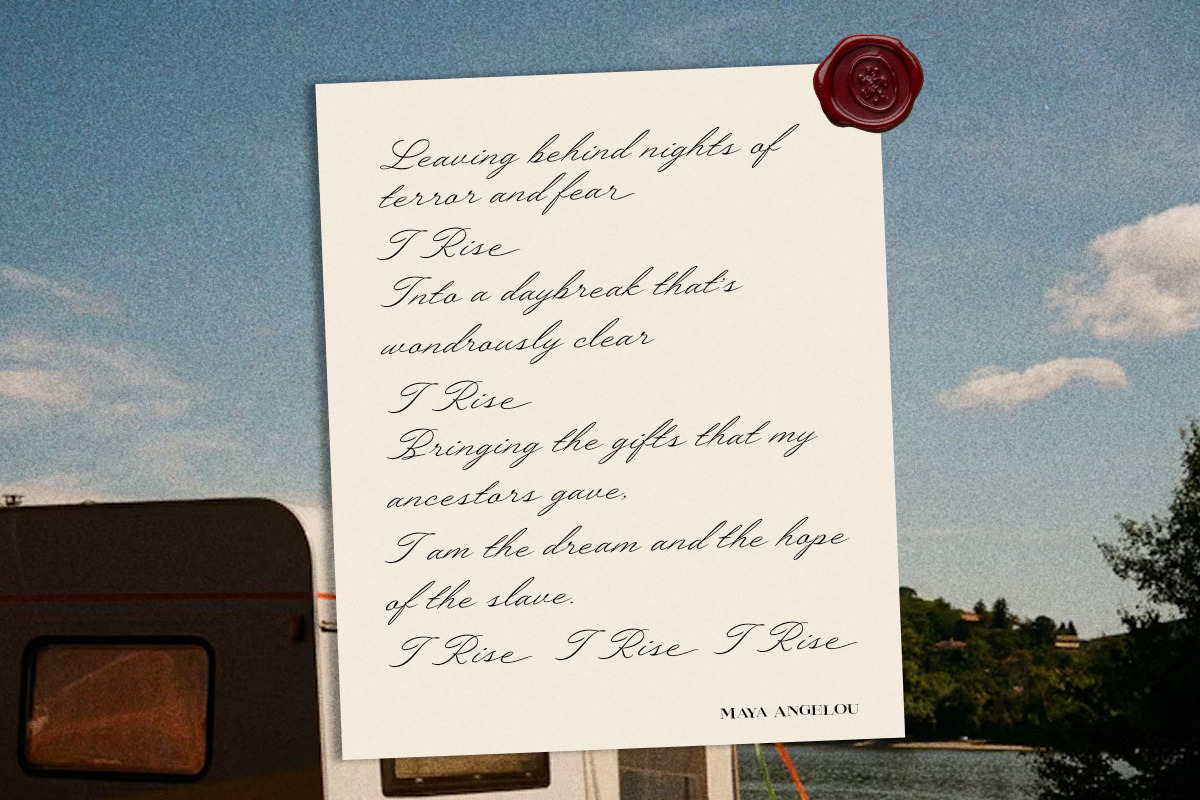 Leaving behind nights of
terror and fear
I Rise
Into a daybreak that's
wondrously clear
I Rise
Bringing the gifts that my
ancestors gave,
I am the dream and the hope
of the slave.
I Rise I Rise I Rise
MAYA ANGELOU